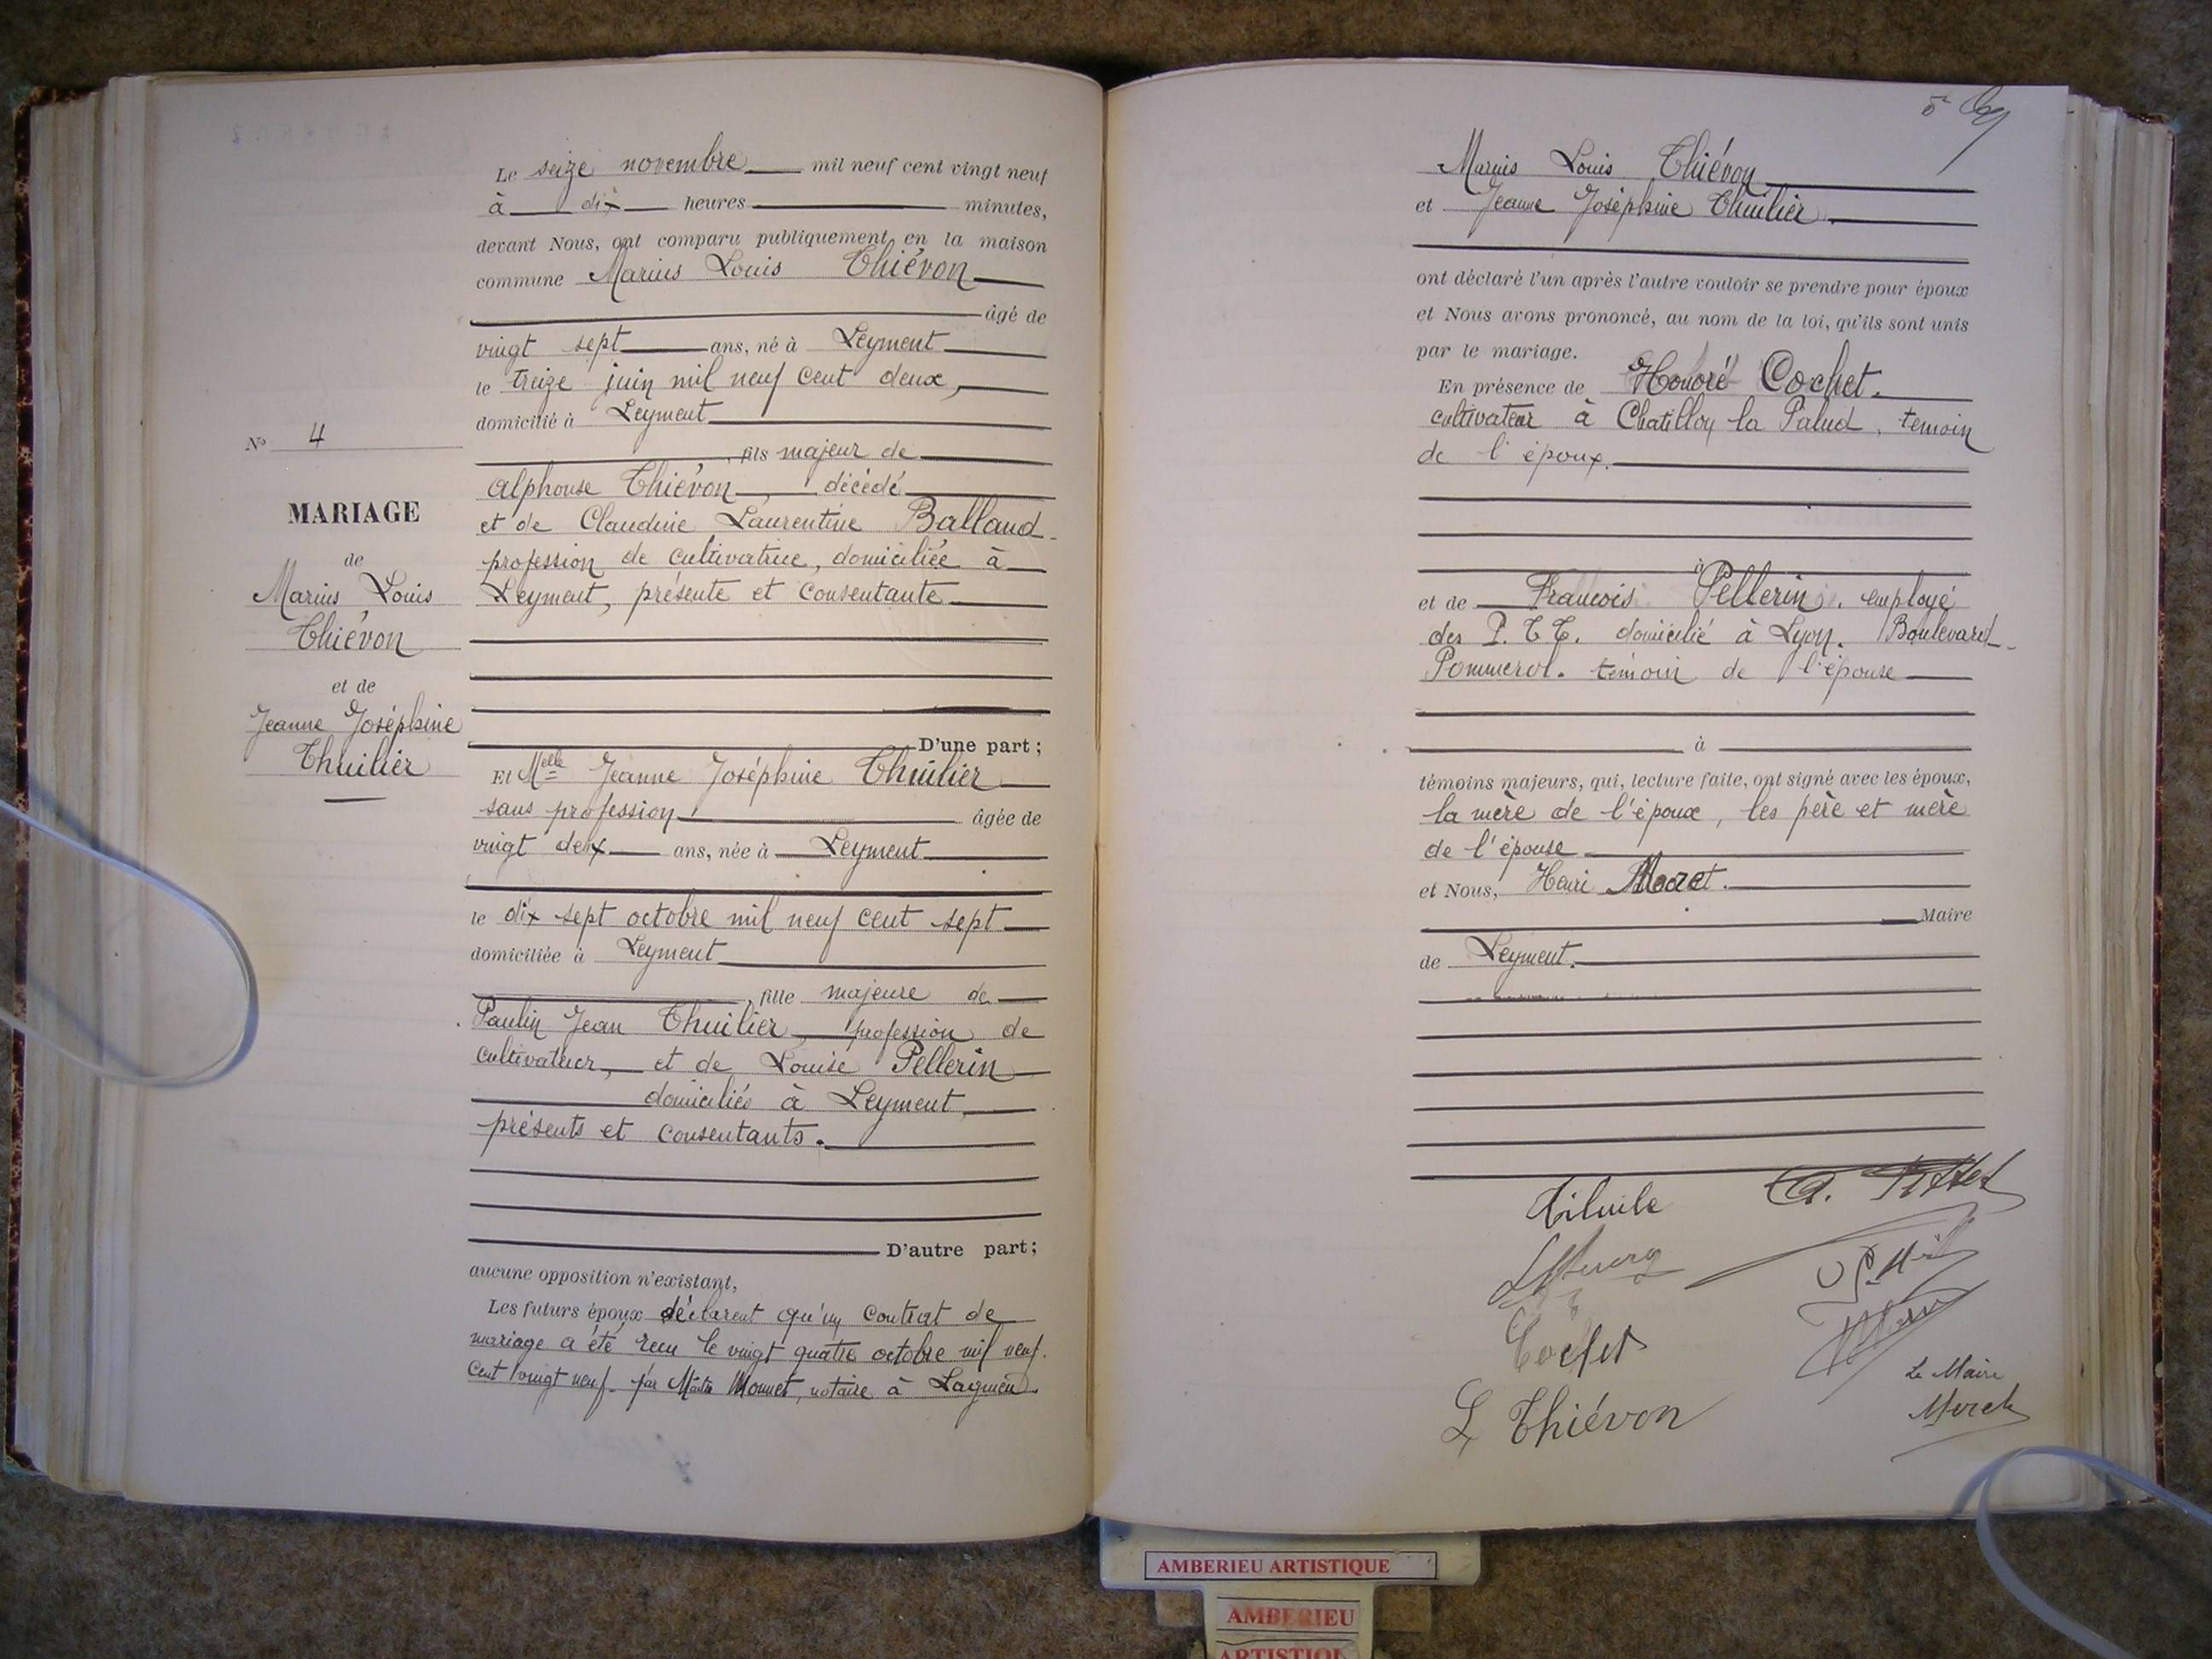 N° 4
MARIAGE
de
Marius Louis
Thiévon
et de
Jeanne Joséphine
Thuilier
Le seize novembre mil neuf cent vingt neuf
à dix heures minutes,
devant Nous, ont comparu publiquement en la maison
commune Marius Louis Thiévon
âgé de
vingt sept ans, né à Leyment
le treize juin mil neuf cent deux,
domicilié à Leyment
, fils majeur de
Alphonse Thiévon, décédé
et de Claudine Laurentine Balland
profession de cultivatrice, domiciliée à
Leyment, présente et consentante
D'une part;
Et Melle Jeanne Joséphine Thuilier
sans profession âgée de
vingt deux ans, née à Leyment
le dix sept octobre mil neuf cent sept
domiciliée à Leyment
, fille majeure de
Paulin Jean Thuilier, profession de
cultivateur, et de Louise Pellerin
domiciliés à Leyment,
présents et consentants.
D'autre part;
aucune opposition n'existant,
Les futurs époux déclarent qu'un contrat de
mariage a été recu le vingt quatre octobre mil neuf
cent vingt neuf par Maître Monnet, notaire à Lagnieu
Marius Louis Thiévon
et Jeanne Joséphine Thuilier.
ont déclaré l'un après l'autre vouloir se prendre pour époux
et Nous avons prononcé, au nom de la loi, qu'ils sont unis
par le mariage.
En présence de Honoré Cochet.
cultivateur à Chatillon la Palud, temoin
de l'époux.
à
et de Francois Pellerin, employé
des P.T.T. domicilié à Lyon. Boulevard
Pommerol. témoin de l'épouse
à
témoins majeurs, qui, lecture faite, ont signé avec les époux,
la mère de l'époux, les père et mère
de l'épouse
et Nous, Henri
Maire
de Leyment.
Cochet
L Thiévon
Le Maire
AMBERIEU ARTISTIQUE
AMBERIEU